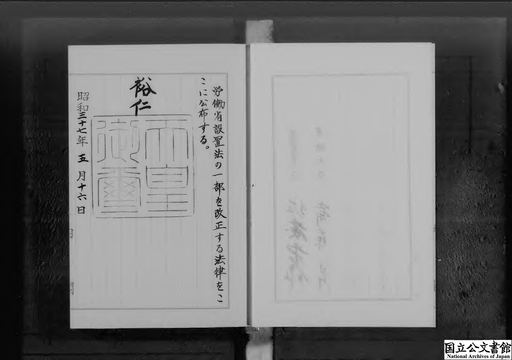 労働省設置法の一部を改正する法律をこ
こに公布する。
裕仁
天皇御璽
昭和三十七年五月十六日
国立公文書館
National Archives of Japan